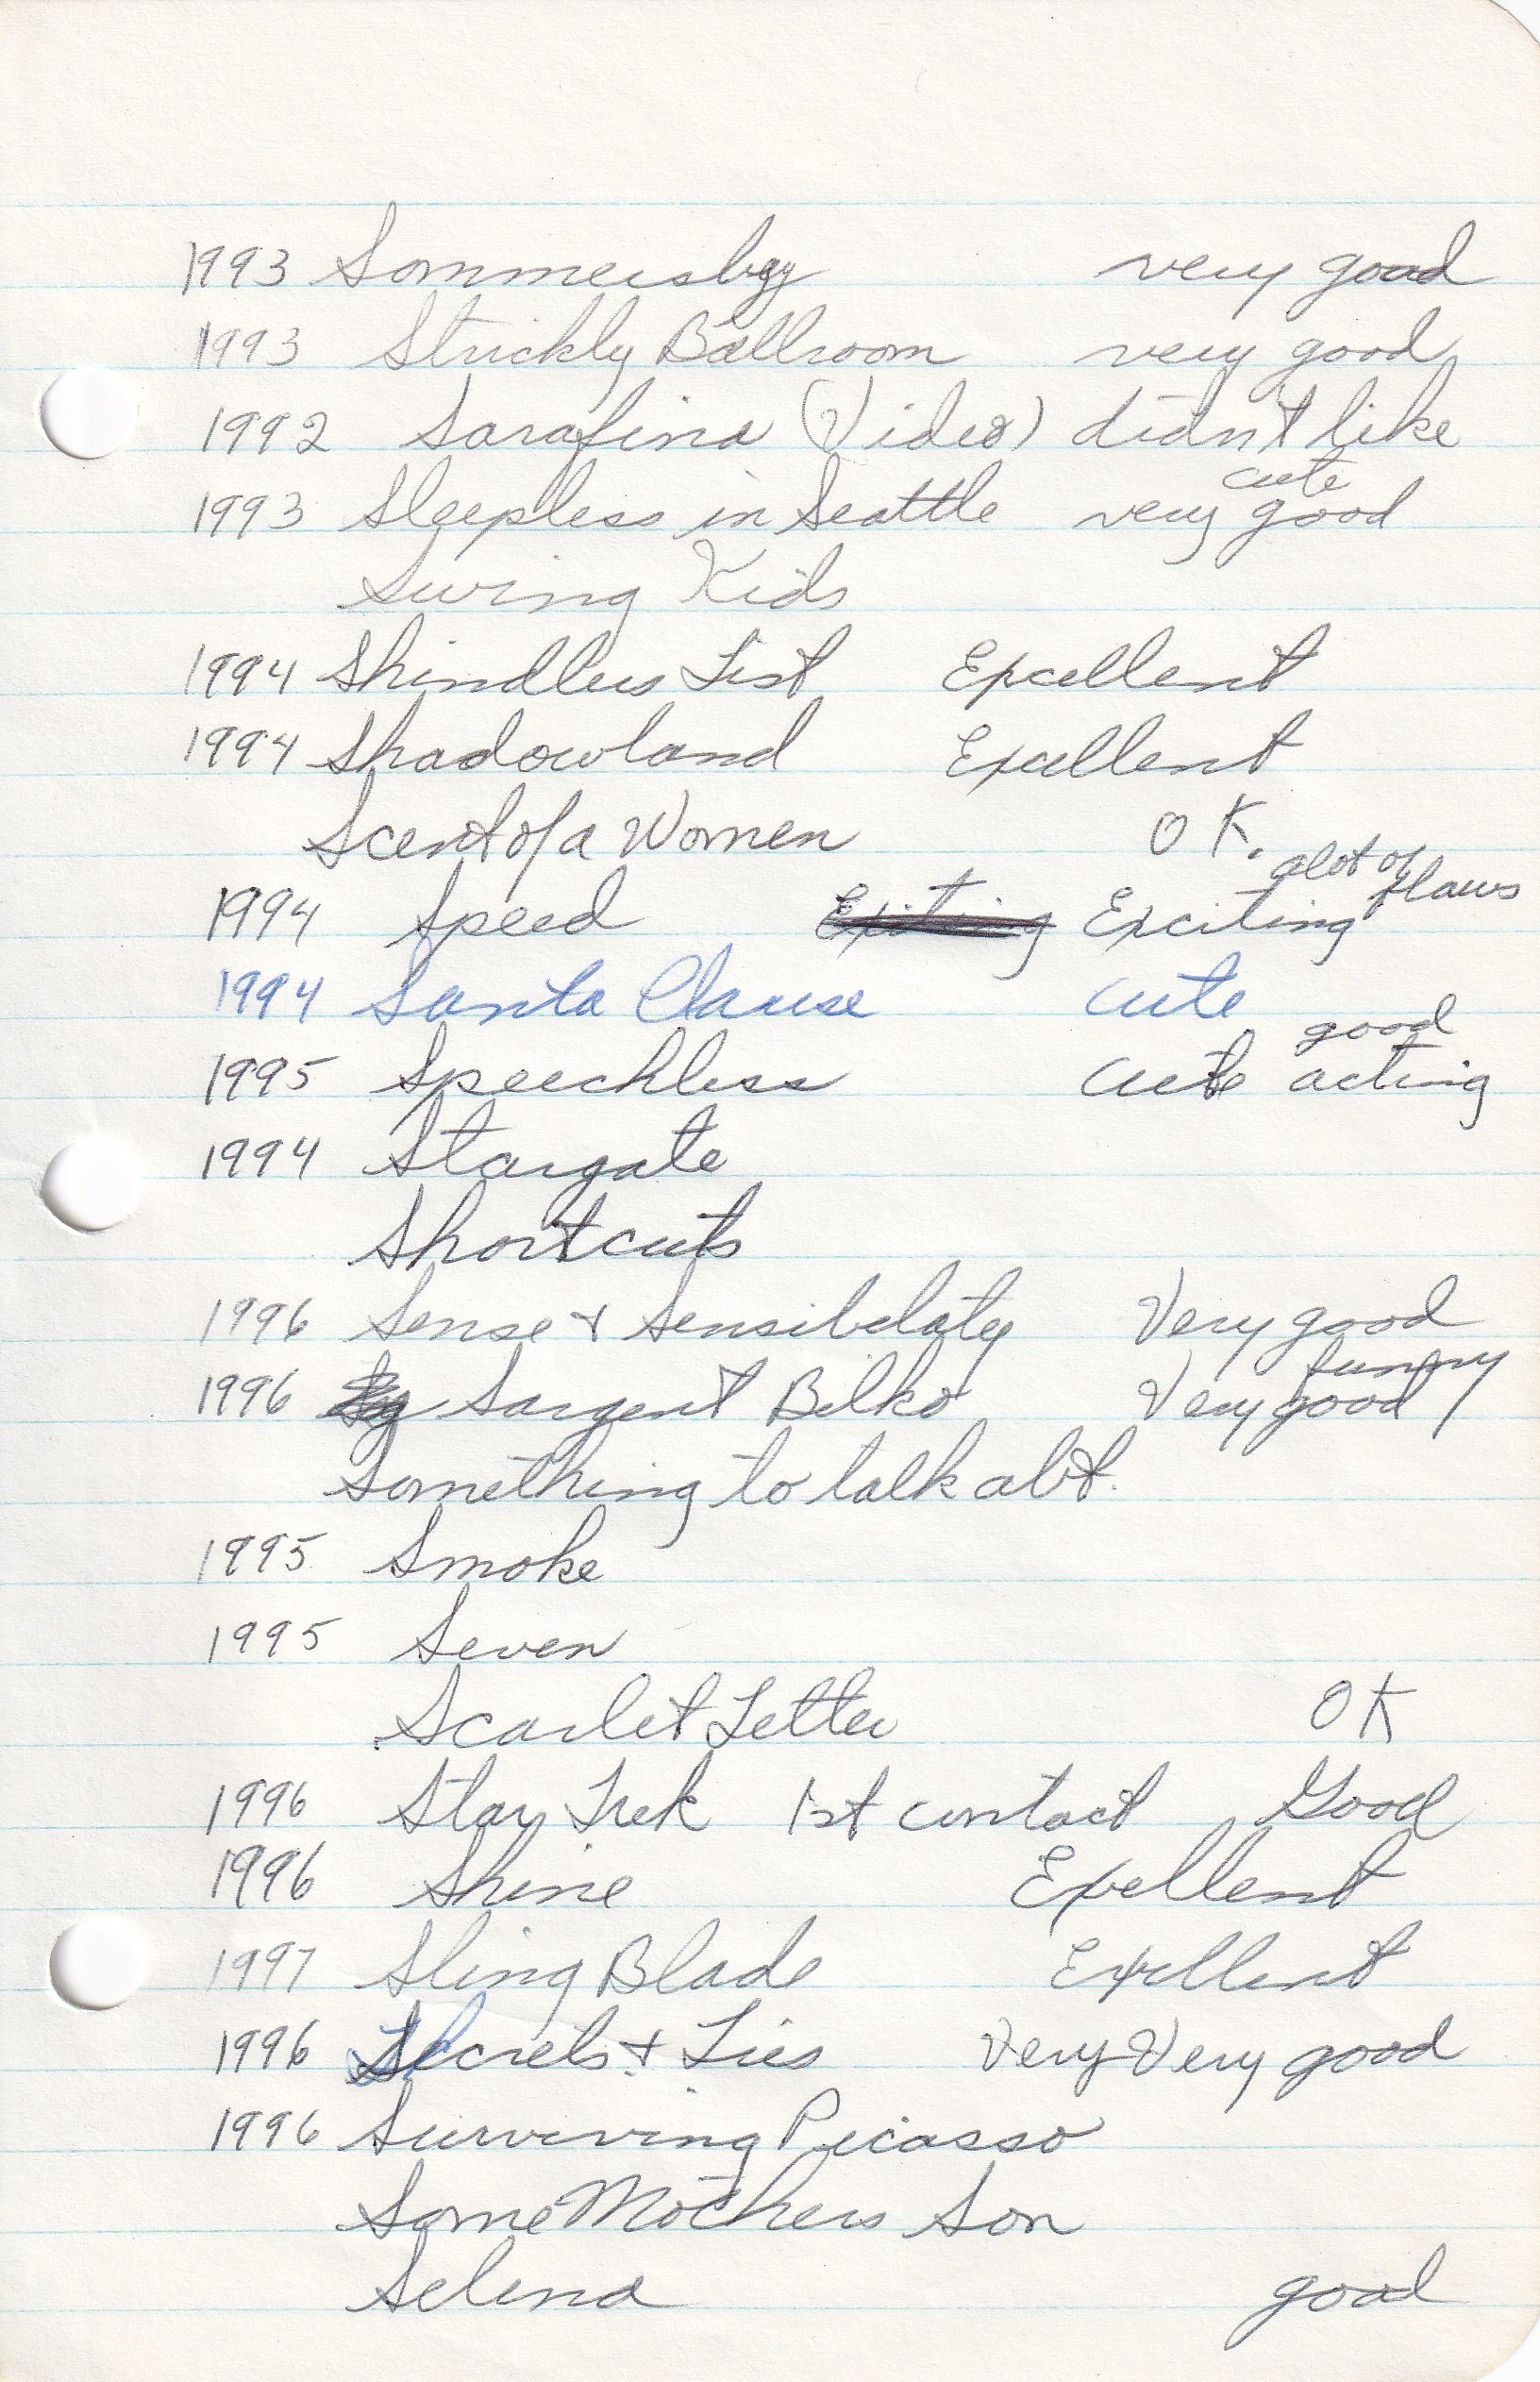 1993 Sommersby very good
1993 Strickly Ballroom very good
1992 Sarafina (Video) didn't like
cute
1993 Sleepless in Seattle very good
Swing Kids
1994 Shindlers List Excellent
1994 Shadowland Excellent
Scent of a Women OK.
alot of flaws
1994 Speed Exciting
1994 Santa Clause cute
good
1995 Speechless cute acting
1994 Stargate
Shortcuts
1996 Sense + Sensibelaty Very good
funny
1996 Sargent Bilko Very good
Something to talk abt.
1995 Smoke
1995 Seven
Scarlet Letter OK
1996 Star Trek 1st contact Good
1996 Shine Exellent
1997 Sling Blade Exellent
1996 Secrets + Lies Very Very good
1996 Surviving Picasso
Some Mothers Son
Selena good